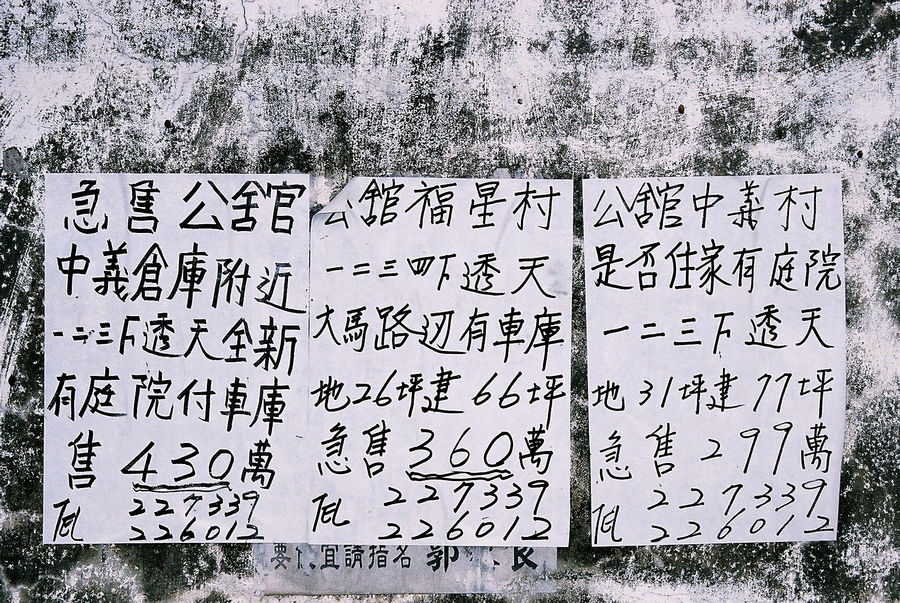 急售公舘官
中義倉庫附近
一二三下透天全新
有庭院付車庫
售430萬
227339
226012
公舘福星村
一二三四下透天
大馬路辺有車庫
地26坪建66坪
急售360萬
227339
226012
公舘官中義村
是否住家有庭院
一二三下透天
地31坪建77坪
急售299萬
227339
226012
宜請指名 郭 良